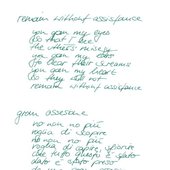 remain without assistance
you gave my eyes
so that I see
the others misery
you gave my ears
to hear their screams
you gave my heart
so they did not
remain without assistance
gram
no non no più
voglia di capire
no non no più
voglia di capire
che tutto questo è stato
dato è stato preso